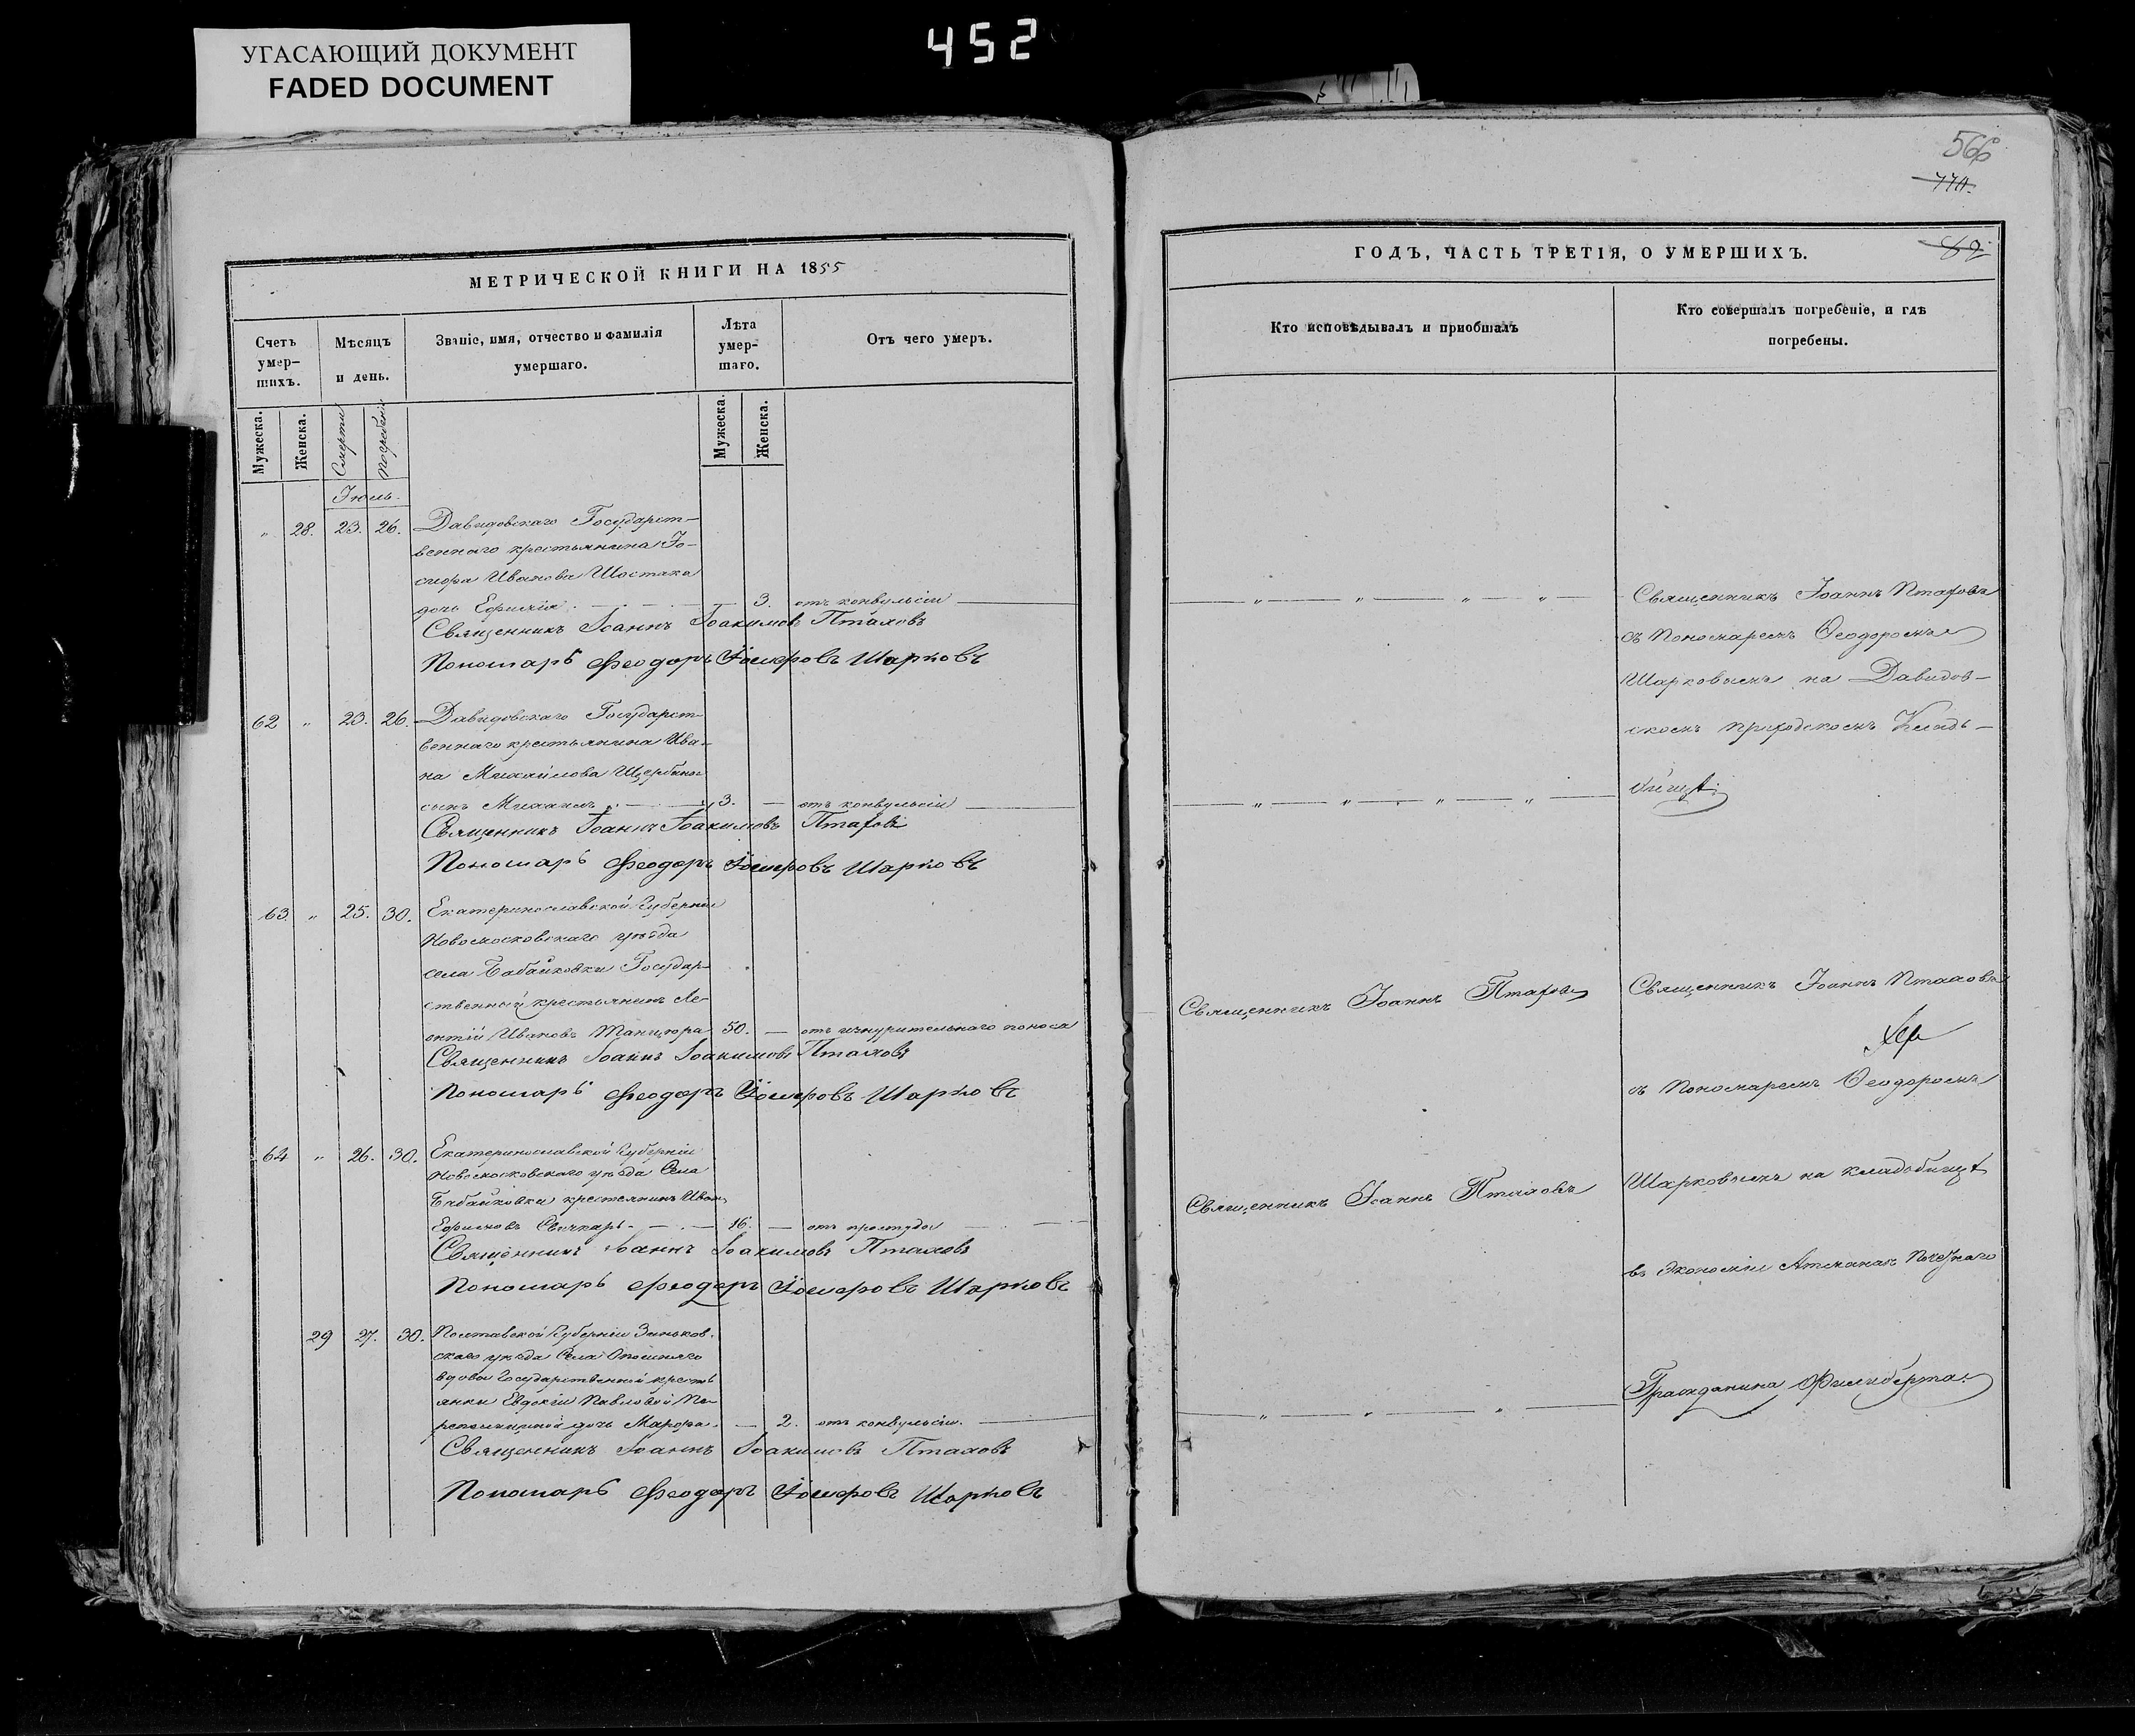 УГАСАЮЩИЙ ДОКУМЕНТ
FADED DOCUMENT
452
МЕТРИЧЕСКОЙ КНИГИ НА 1855
Счетъ умер-шихъ.
Мѣсяцъ и день.
Званіе, имя, отчество и фамилія умершаго.
Лѣта умер-шаго.
Отъ чего умеръ.
Мужеска.
Женска.
Смерти
Погребенія
Мужеска.
Женска.
Іюль.
" 28. 23. 26. Давидовскаго Государст-
веннаго крестьянина Іо-
сифа Иванова Шостака
дочь Ефимія 3. отъ конвульсіи
Священникъ Іоаннъ Іоакимовъ Птаховъ
Пономарь Феодоръ Іосифовъ Шарковъ
62 " 23. 26. Давидовскаго Государст-
веннаго крестьянина Ива-
на Михайлова Щербины
сынъ Михаилъ 3. — отъ конвульсіи
Священникъ Іоаннъ Іоакимовъ Птаховъ
Пономарь Феодоръ Іосифовъ Шарковъ
63. " 25. 30. Екатеринославской Губерніи
Новомосковскаго уѣзда
села Бабайковки Государ-
ственный крестьянинъ Ле-
онтій Ивановъ Танцюра 50. — отъ изнурительнаго поноса
Священникъ Іоаннъ Іоакимовъ Птаховъ
Пономарь Феодоръ Іосифовъ Шарковъ
64 " 26. 30. Екатеринославской Губерніи
Новомосковскаго уѣзда Села
Бабайковки крестьянинъ Иванъ
Ефимовъ 16. — отъ простуды
Священникъ Іоаннъ Іоакимовъ Птаховъ
Пономарь Феодоръ Іосифовъ Шарковъ
29 27. 30. Полтавской Губерніи Зеньков-
скаго уѣзда Села Опошняго
вдовы Государственной кресть
янки Евдокіи Павловой
дочь Марфа. — 2. отъ конвульсіи.
Священникъ Іоаннъ Іоакимовъ Птаховъ
Пономарь Феодоръ Іосифовъ Шарковъ
566
774.
82
ГОДЪ, ЧАСТЬ ТРЕТІЯ, О УМЕРШИХЪ.
Кто исповѣдывалъ и приобщалъ
Кто совершалъ погребеніе, и гдѣ погребены.
Священникъ Іоаннъ Птаховъ
съ Пономаремъ Ѳеодоромъ
Шарковымъ на Давидов-
скомъ приходскомъ Кладъ-
бищѣ.
Священникъ Іоаннъ Птаховъ
Священникъ Іоаннъ Птаховъ
съ Пономаремъ Ѳеодоромъ
Священникъ Іоаннъ Птаховъ
Шарковымъ на кладбищѣ
въ Экономіи Атманай Почетнаго
Гражданина Филиберта.